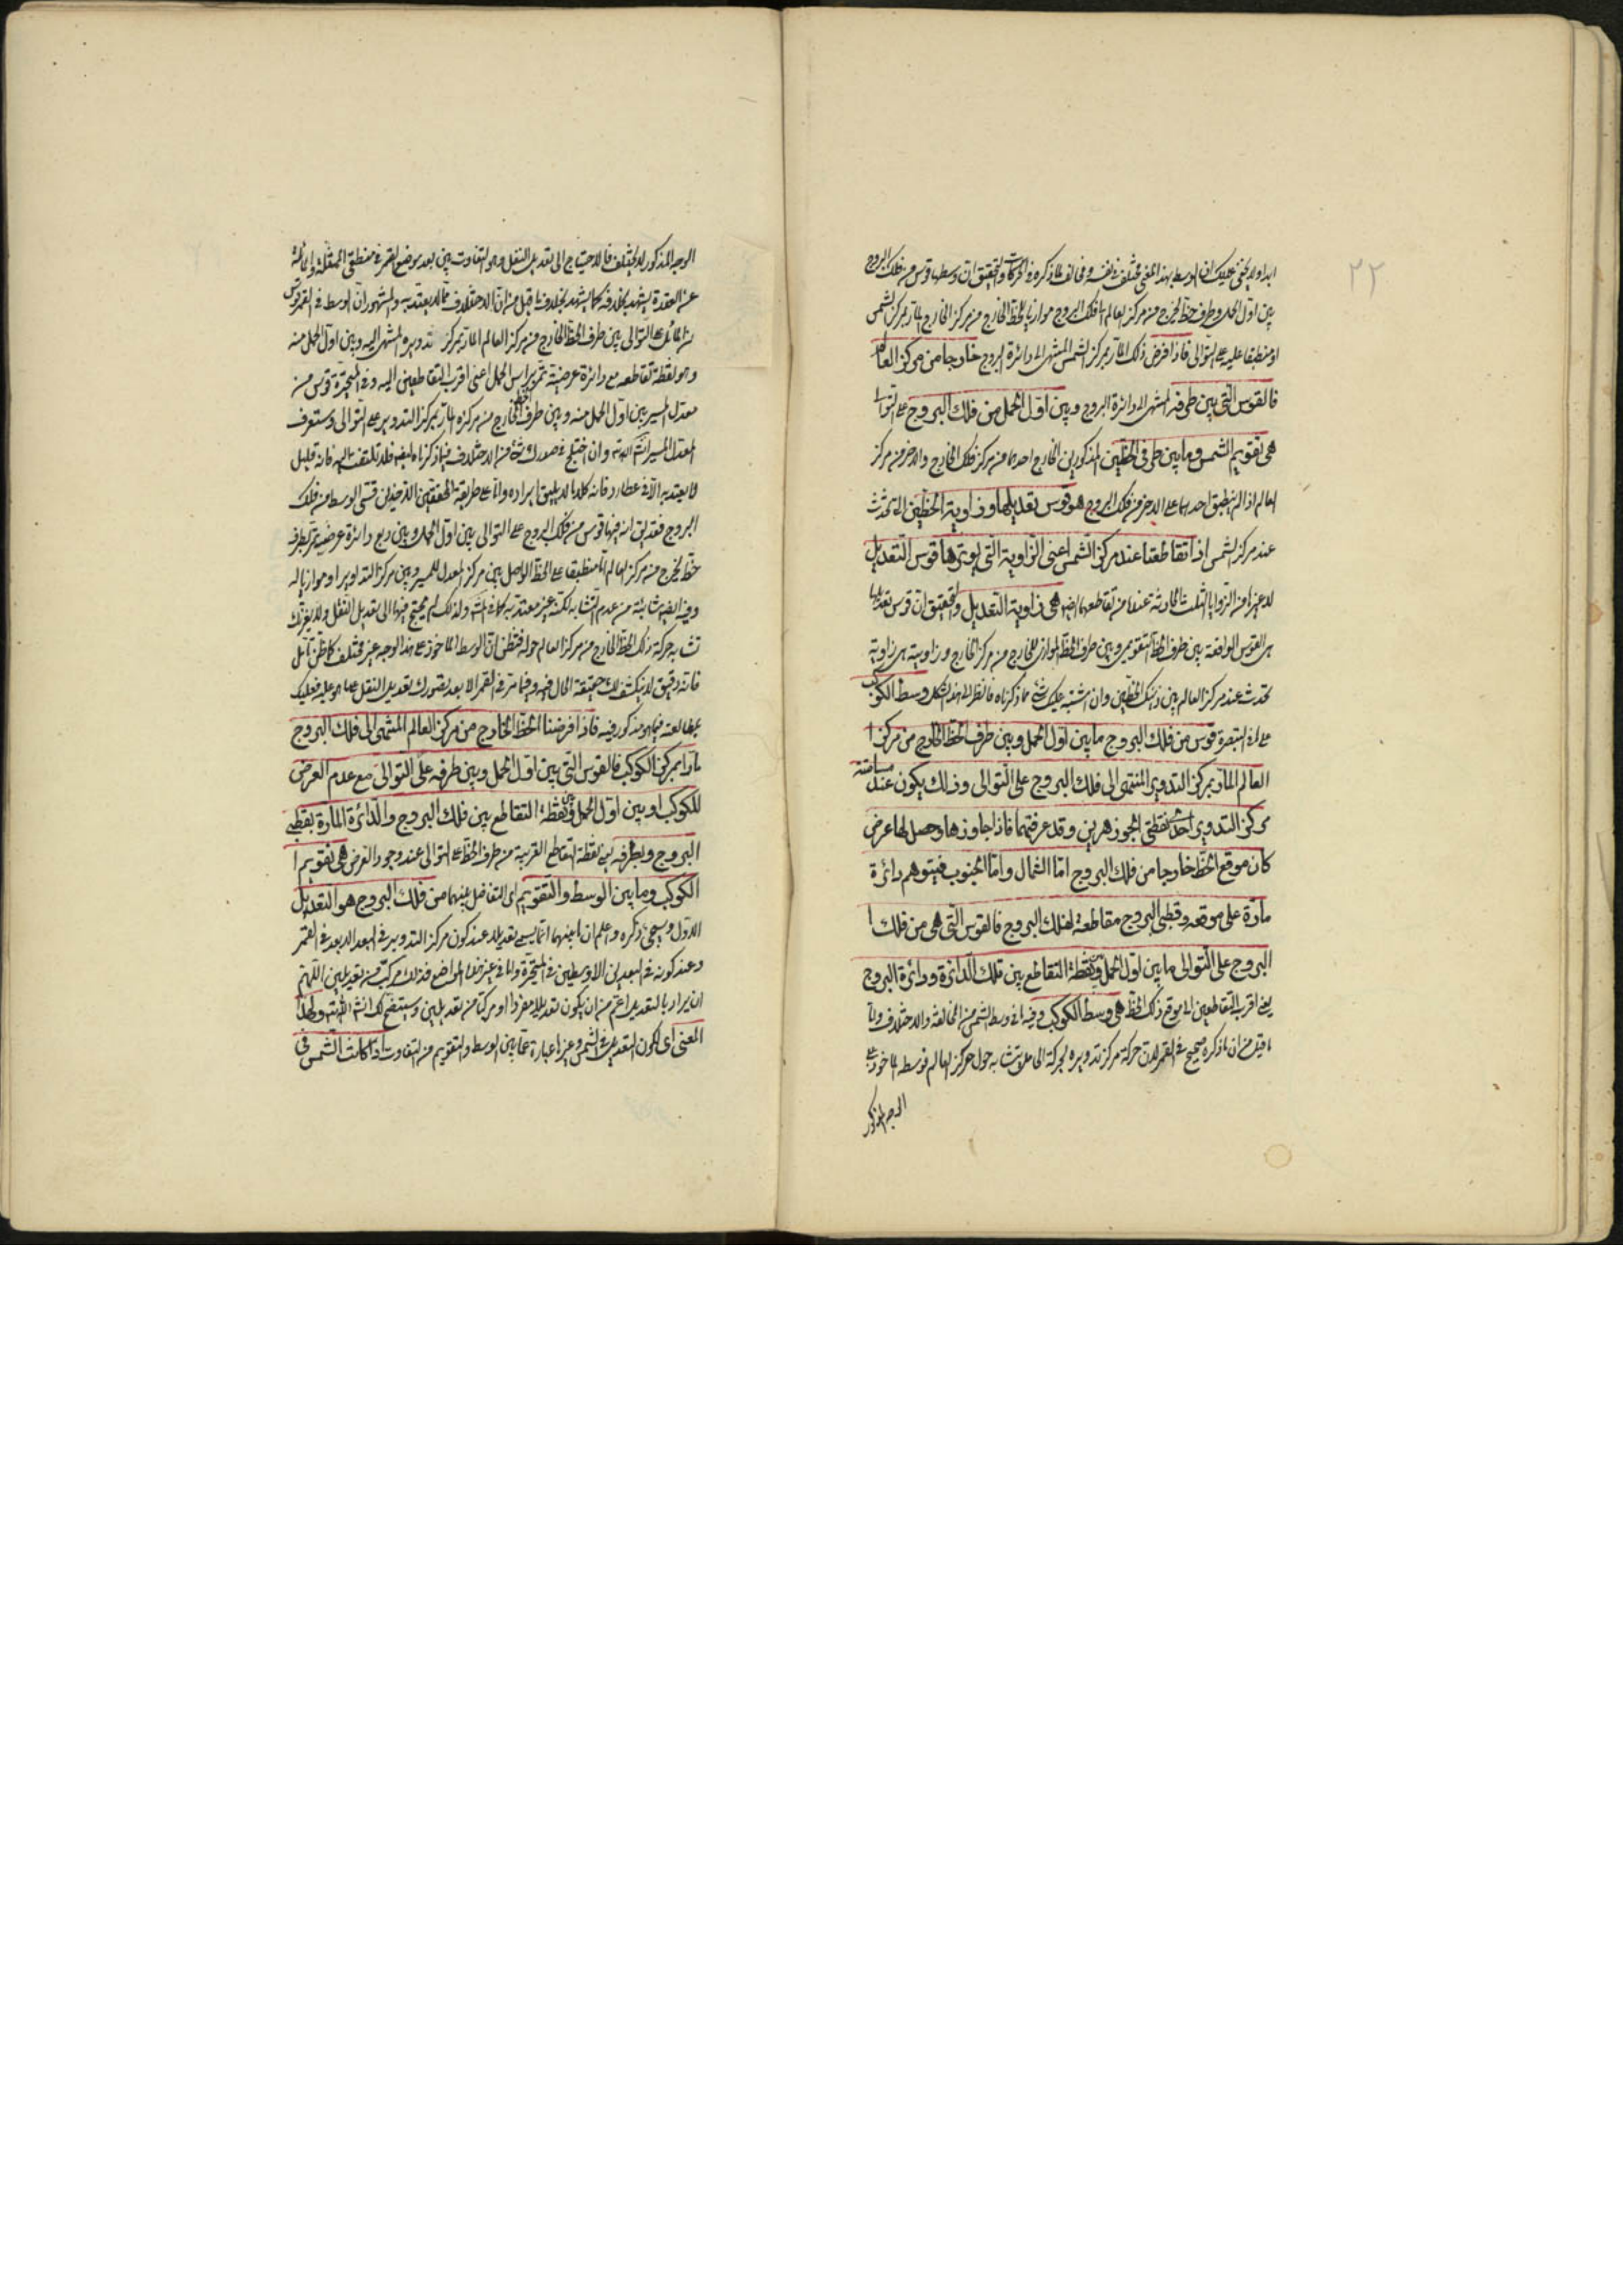 ٢٢
ابدا ولا يخفى عليك ان الوسط بهذا المعنى مختلف في نفسه ومخالف لما ذكره في الحركات والتحقيق ان وسطها قوس من فلك البروج
بين اول الحمل وطرف خط يخرج من مركز العالم الى فلك البروج موازيا للخط الخارج من مركز الخارج المار بمركز الشمس
او منطبقا عليه على التوالى فاذا فرض ذلك المار بمركز الشمس المنتهى الى دائرة البروج خارجا من مركز العالم
فالقوس التى بين طرفه المنتهى الى دائرة البروج وبين اول الحمل من فلك البروج على التوالى
هى تقويم الشمس وما بين طرفى الخطين المذكورين الخارج احدهما من مركز فلك الخارج والاخر من مركز
العالم اذا لم ينطبق احدهما على الاخر من فلك البروج هو قوس تعديلها وزاوية الخطين التى تحدث
عند مركز الشمس اذا تقاطعتا عند مركز الشمس اعنى الزاوية التى يوترها قوس التعديل
لا غيرها من الزوايا الثلث الحادثة عندها من تقاطعهما ايضا هى زاوية التعديل والتحقيق ان قوس تعديلها
هى القوس الواقعة بين طرف الخط التقويمى وبين طرف الخط الموازى للخارج من مركز الخارج وزاويته هى زاوية
تحدث عند مركز العالم بين ذينك الخطين وان اشتبه عليك شئ مما ذكرناه فانظر الى هذا الشكل وسط الكوكب
على ما فى التبصرة قوس من فلك البروج ما بين اول الحمل وبين طرف الخط الخارج من مركز ا
العالم المار بمركز التدوير المنتهى الى فلك البروج على التوالى وذلك يكون عند مسامتة
مركز التدوير احدى نقطتى الجوزهرين وقد عرفتهما فاذا جاوزها وحصل لها عرض
كان موقع الخط خارجا من فلك البروج اما الشمال واما الجنوب فيتوهم دائرة
مارة على موقعه وقطبى البروج مقاطعة لفلك البروج فالقوس التى هى من فلك ا
البروج على التوالى ما بين اول الحمل وبين نقطة التقاطع بين تلك الدائرة ودائرة البروج
يعنى اقرب التقاطعين الى موقع ذلك الخط هى وسط الكوكب وفيه ما فى وسط الشمس من المخالفة والاختلاف واما
ما قيل من ان ما ذكره صحيح في القمر لان حركة مركز تدويره بحركة الحامل تتشابه حول مركز العالم فوسطه الماخوذ على
الوجه المذكور
الوجه المذكور لا يختلف فالاحتياج الى تعديل النقل وهو التفاوت بين بعد موضع القمر في منطقتى الممثل والمائل
عن العقدة يشهد بخلافه كما يشهد بخلاف ما قيل من ان الاختلاف مما لا يعتد به والمشهور ان الوسط في القمر قوس
من المائل على التوالى بين طرف الخط الخارج من مركز العالم المار بمركز تدويره المنتهى اليه وبين اول الحمل منه
وهو نقطة تقاطعه مع دائرة عرضية تمر براس الحمل اعنى اقرب التقاطعين اليه وفى المتحيرة قوس من
معدل المسير بين اول الحمل منه وبين طرف الخط الخارج من مركزه المار بمركز التدوير على التوالى وستعرف
المعدل المسير ان شاء الله تعالى وان اختلج في صدرك شئ من الاختلاف فيما ذكرنا ايضا فلا تلتفت اليه فانه قليل
لا يعتد به الا في عطارد فانه كلام لا يليق ايراده واما على طريقة المحققين الاخذين قسى الوسط من فلك
البروج فقد يق انه فيها قوس من فلك البروج على التوالى بين اول الحمل وبين ربع دائرة عرضية تمر بطرف
خط يخرج من مركز العالم اما منطبقا على الخط الواصل بين مركز المعدل للمسير وبين مركز التداوير او موازيا له
وفيه ايضا شائبة من عدم التشابه لكنه غير معتد به كما في الشمس ولذلك لم يحتج فيها الى تعديل النقل ولا يغرنك
تشابه حركة ذلك الخط الخارج من مركز العالم حوله فتظن ان الوسط الماخوذ على هذا الوجه غير مختلف كما ظن تامل
فانه دقيق لا ينكشف لك حقيقة الحال فيه وفيما مر في القمر الا بعد تصورك تعديل النقل على ما هو عليه فعليك
بمطالعته فيما هو مذكور فيه فاذا فرضنا الخط الخارج من مركز العالم المنتهى الى فلك البروج
مارا بمركز الكوكب فالقوس التى بين اول الحمل وبين طرفه على التوالى مع عدم العرض
للكوكب او بين اول الحمل وبين نقطة التقاطع بين فلك البروج والدائرة المارة بقطبى
البروج وبطرفه يعنى نقطة التقاطع القريبة من طرف الخط على التوالى عند وجود العرض هى تقويم ا
الكوكب وما بين الوسط والتقويم اى التفاضل بينهما من فلك البروج هو التعديل
الاول وسيجئ ذكره واعلم ان ما بينهما انما يسمى تعديلا عند كون مركز التدوير في البعد الابعد في القمر
وعند كونه في البعدين الاوسطين في المتحيرة واما في غير هذا المواضع فذلك مركب من تعديلين اللهم
ان يراد بالتعديل اعم من ان يكون تعديلا مفردا او مركبا من تعديلين وسيتضح لك ان شاء الله تعالى ولهذا
المعنى اى لكون التعديل في الشمس وغيرها عبارة عما بين الوسط والتقويم من التفاوت اذا كانت الشمس في